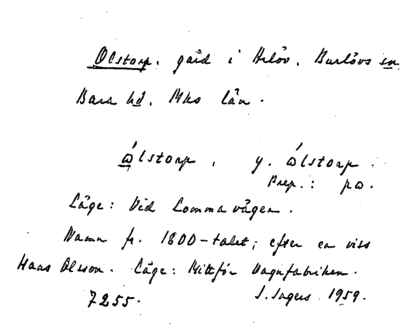 Olstorp, gård i Arlöv, Burlövs sn
Bara hd, Mhs län.
ɷ́lstorp, y. ɷ́lstorp.
Prep.: pɷ.
Läge: Vid Lommavägen.
Namn fr. 1800-talet; efter en viss
Hans Olsson. Läge: Mittför Vagnfabriken.
7255. I. Ingers 1959.